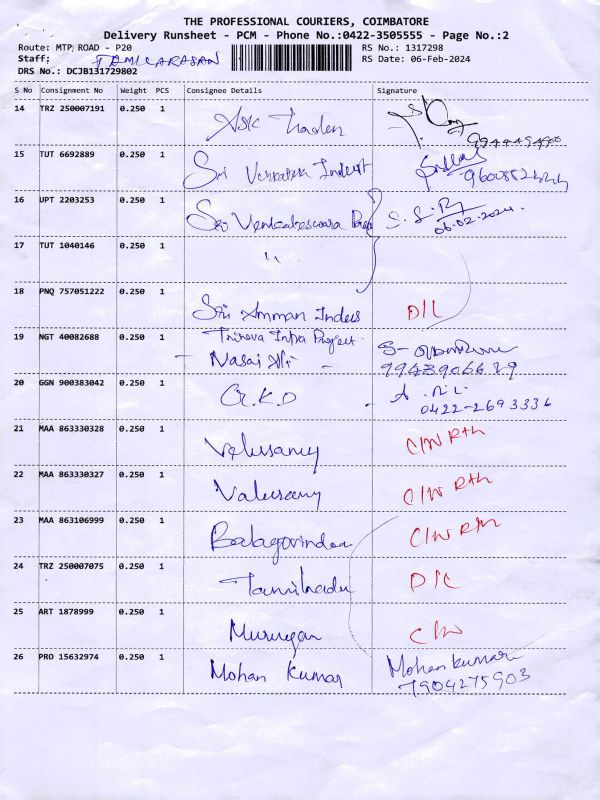 THE PROFESSIONAL COURIERS, COIMBATORE
Delivery Runsheet - PCM - Phone No.:0422-3505555 - Page No.:2
Route: MTP ROAD - P20 RS No.: 1317298
Staff; TAMILARASAN RS Date: 06-Feb-2024
DRS No.: DCJB131729802
S No Consignment No Weight PCS Consignee Details Signature
14 TRZ 250007191 0.250 1 Ask Traders
15 TUT 6692889 0.250 1 Sri Indust
16 UPT 2203253 0.250 1 Sri Venkateswara 06.02.2024.
17 TUT 1040146 0.250 1 "
18 PNQ 757051222 0.250 1 Sri Amman Indus D/L
19 NGT 40082688 0.250 1 Infra Project
20 GGN 900383042 0.250 1 G.K.D 0422-2693336
21 MAA 863330328 0.250 1 Velusamy C/W Rth
22 MAA 863330327 0.250 1 Valusamy C/W Rth
23 MAA 863106999 0.250 1 Balagovindan C/W Rth
24 TRZ 250007075 0.250 1 Tamilnadu D/C
25 ART 1878999 0.250 1 Murugan C/W
26 PRO 15632974 0.250 1 Mohan Kumar Mohan kumar
7904275903